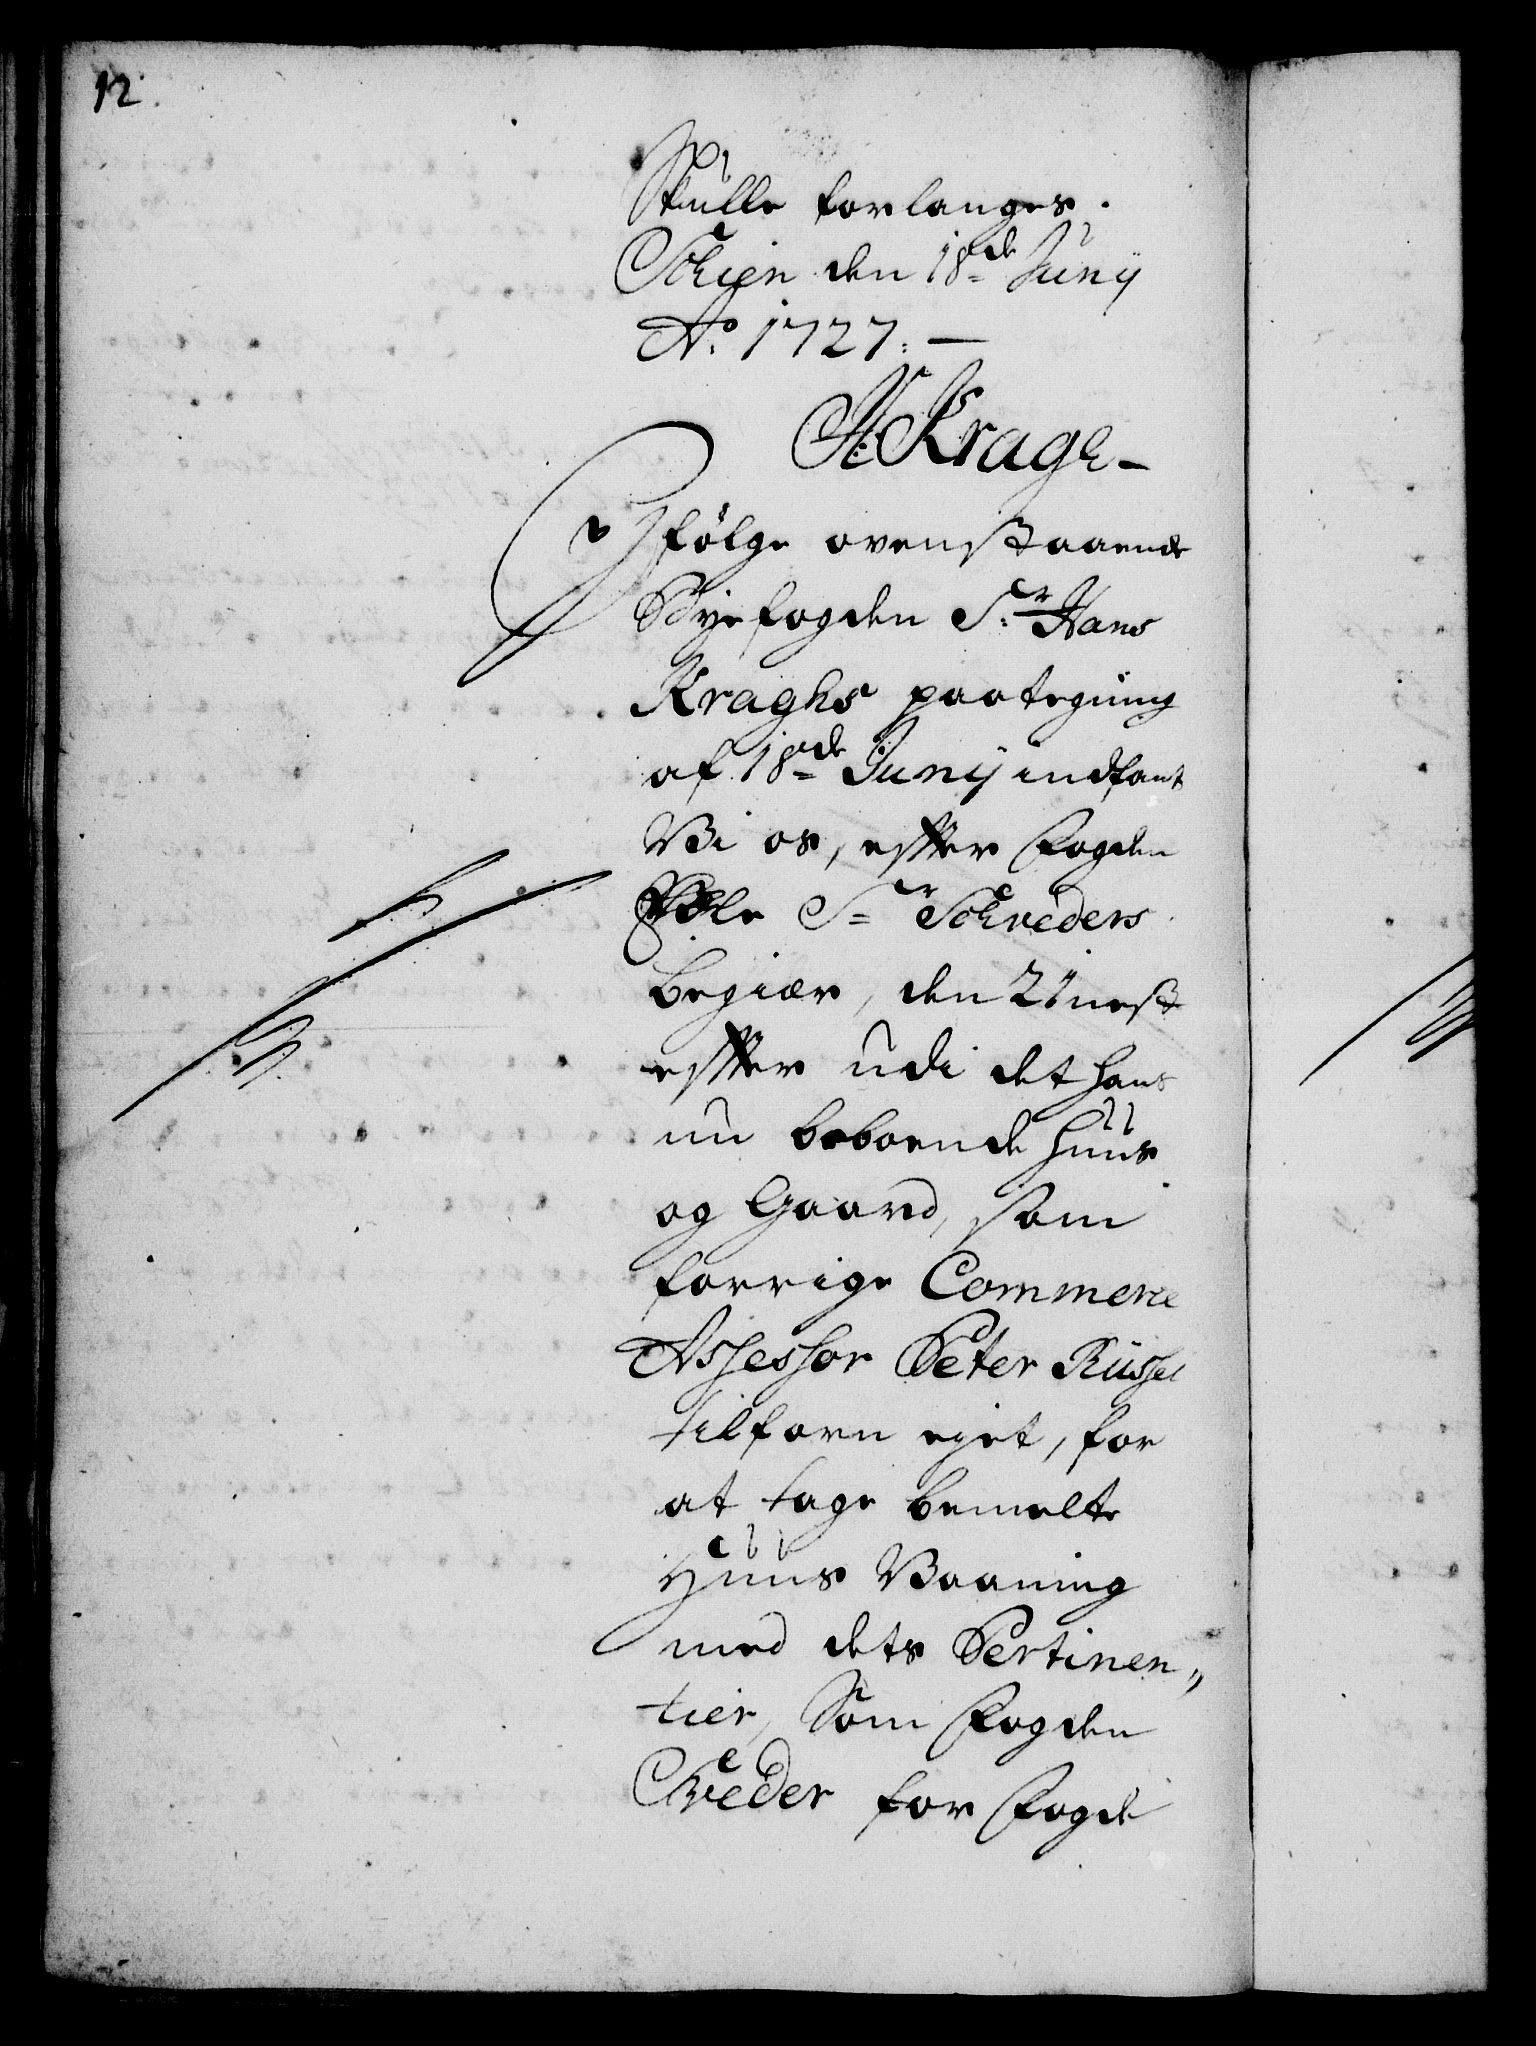 12.
Skulle forlanges.
Schien den 18de Junij
Ao. 1727. —
H: Krage –
J følge ovenstaaende
Byefogden Sr. Hans
Kraghs paategning
af 18de Junij indfant
Vi os, efter Fogden
Sr Schreders
begiær, den 21 nest
efter udi det hans
nu beboende huus
og Gaard, som
forrige Commerce
Assessor Peter Russel
tilforn eyet, for
at tage bemelte
Huus Vaaning
med dets Pertinen„
tier, Som Fogden
Skreder for Fogde